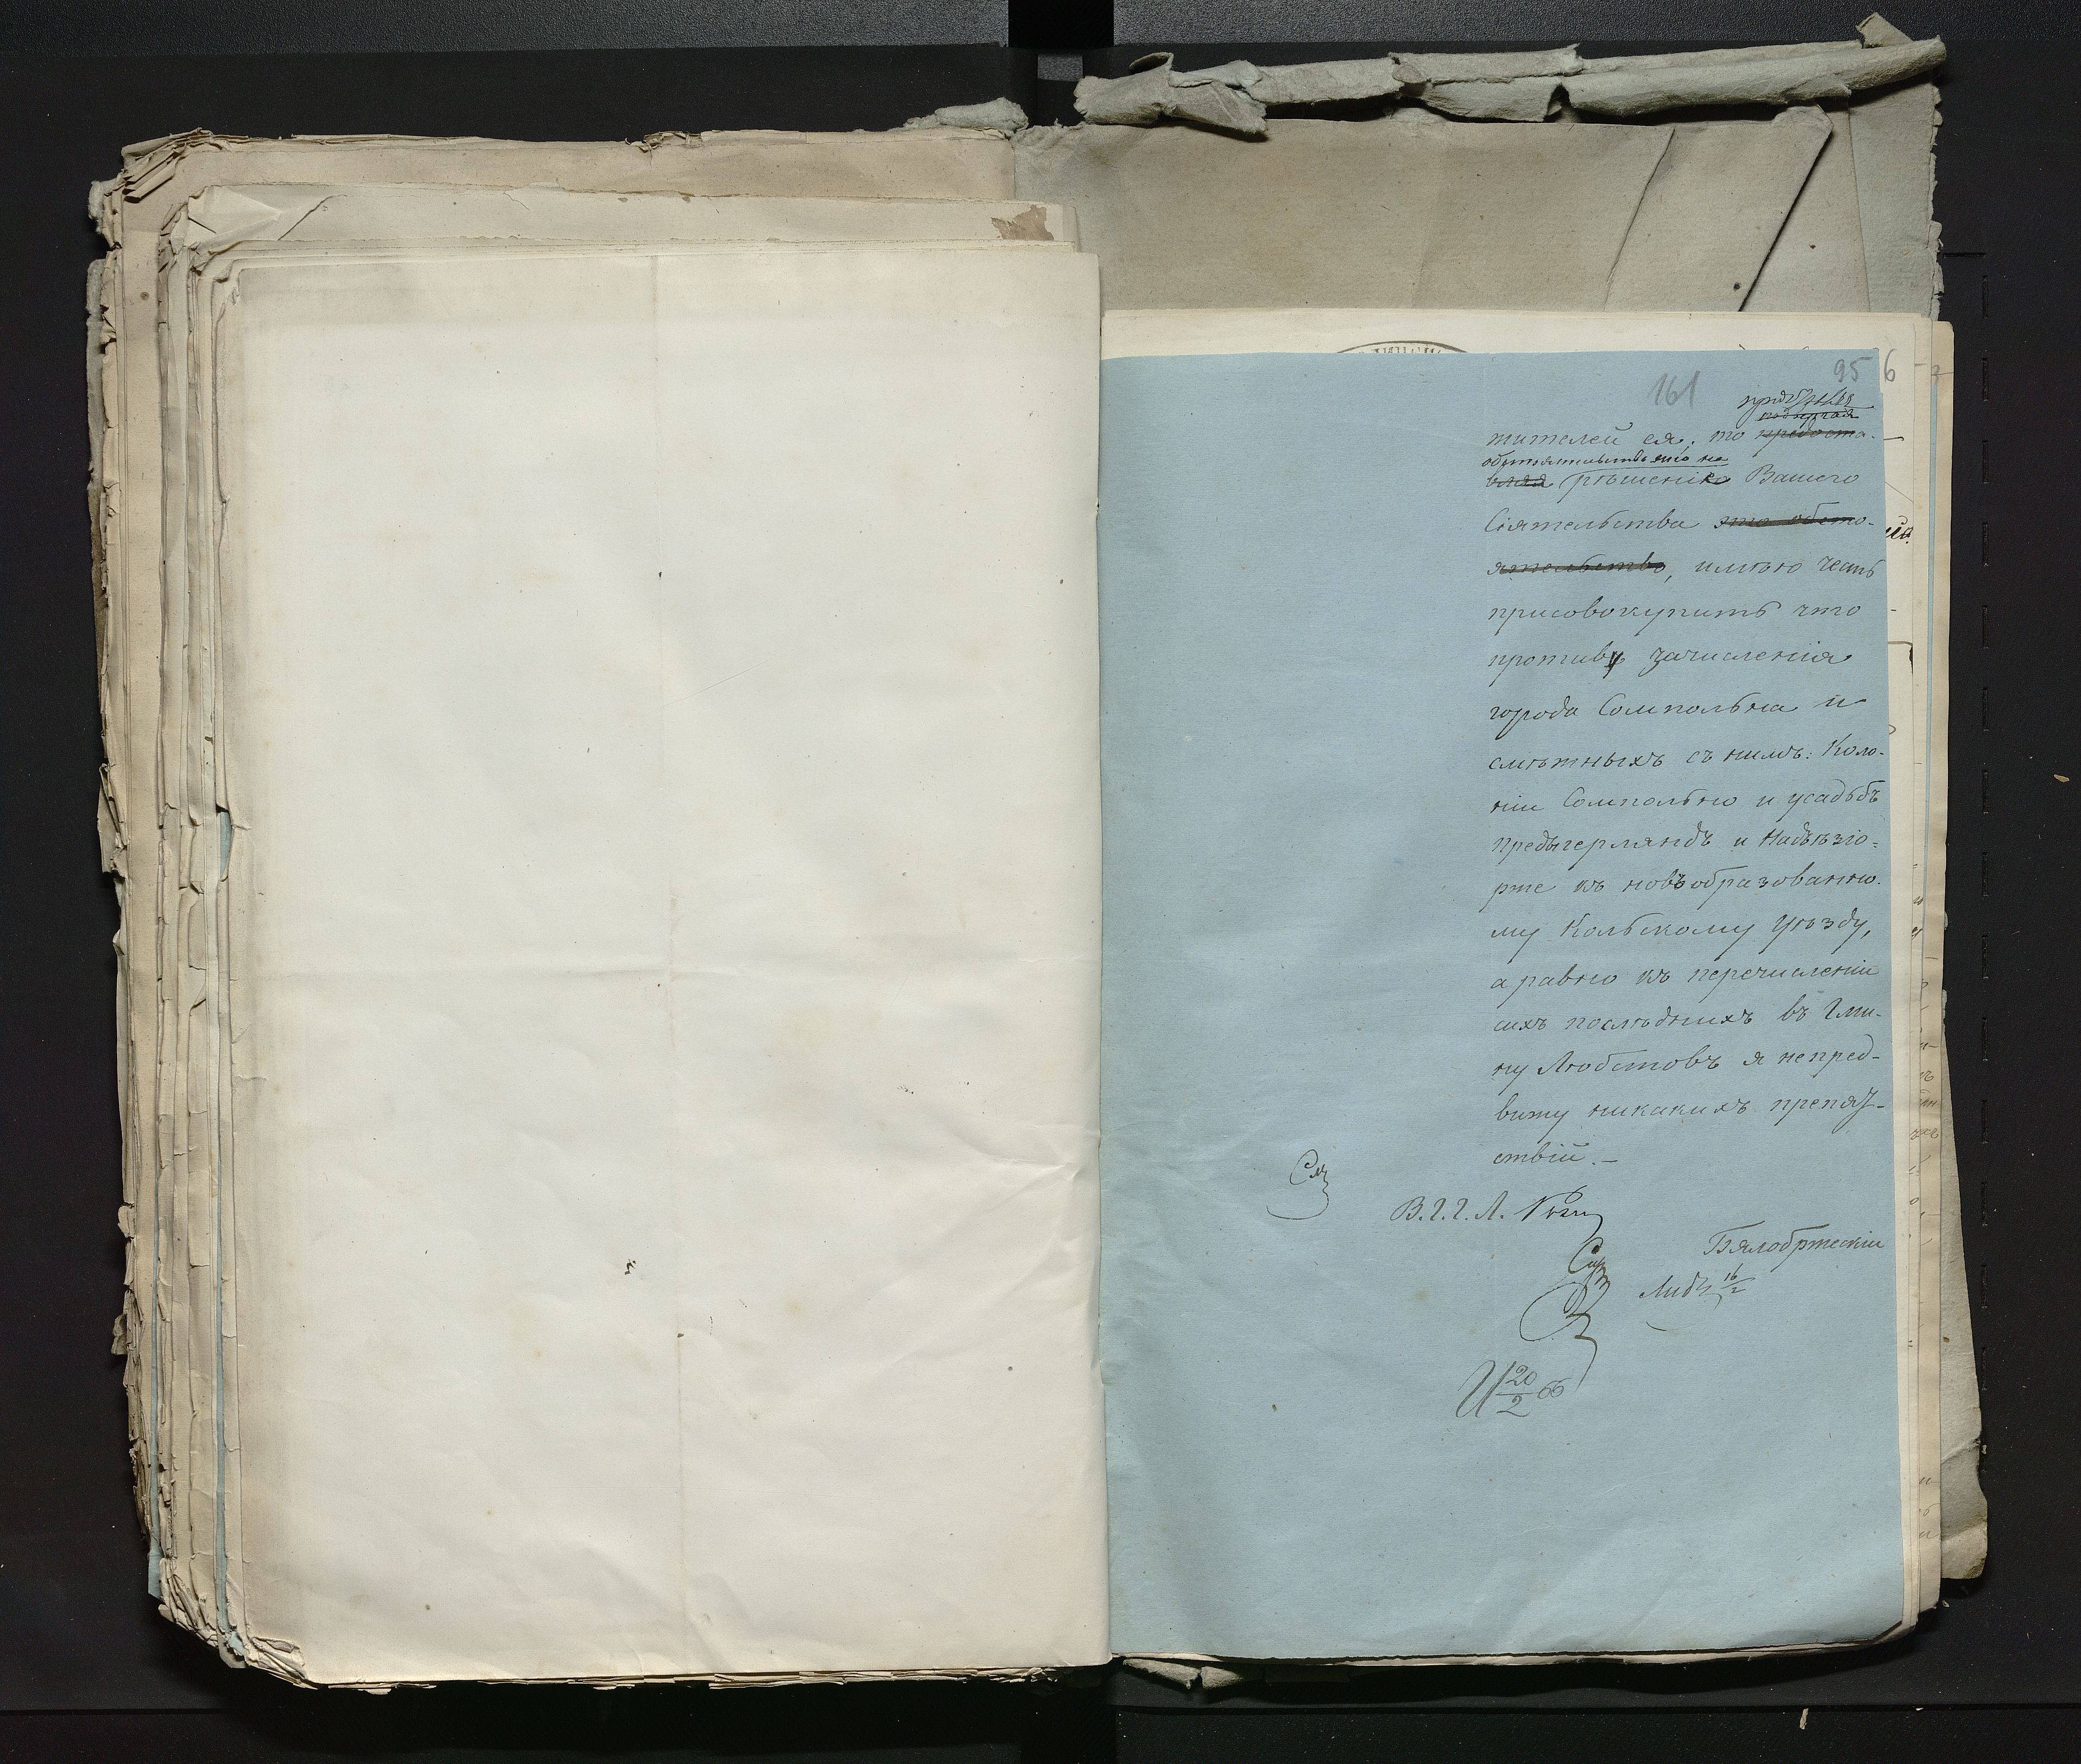 161
95
жителей ея, то предоста-
обстоятельство это на
вляя рѣшеніе Вашего
Сіятельства это обсто-
ятельство, имѣю честь
присовокупить что
противъ зачисленія
города Сомпольна и
смѣжныхъ съ нимъ: Коло-
ніи Сомпольно и усадьбъ
Предыгермяндъ и Надъѣзіо-
рже къ новообразованно-
му Кольскому Уѣзду,
а равно къ перечисленіи
сихъ послѣднихъ въ Гми-
ну Любстовъ я непред-
вижу никакихъ препят-
ствій.—
В.Г.Г.Л.
Бялобржескій
16/2
20/2 66